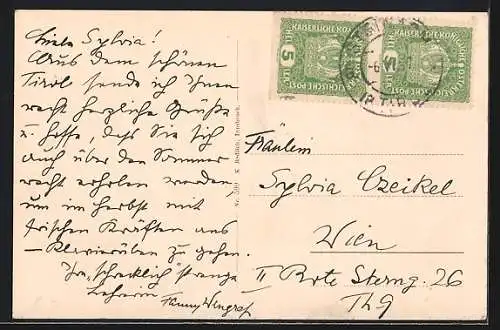 Liebe Sylvia!
Aus dem schönen
Tirol sende ich Ihnen
recht herzliche Grüße
u. hoffe, daß Sie sich
auch über den Sommer
recht erholen werden,
um im Herbst mit
frischen Kräften ans
Klavierüben zu gehen.
Ihre „schrecklich" strenge
Lehrerin Fanny
KAISERLICHE KÖNIGLICHE
ÖSTERREICHISCHE POST
5
HELLER
KAISERLICHE KÖNIGLICHE
ÖSTERREICHISCHE POST
5
Fräulein
Sylvia Czeikel
Wien
II Rote Sterng. 26
Th 9